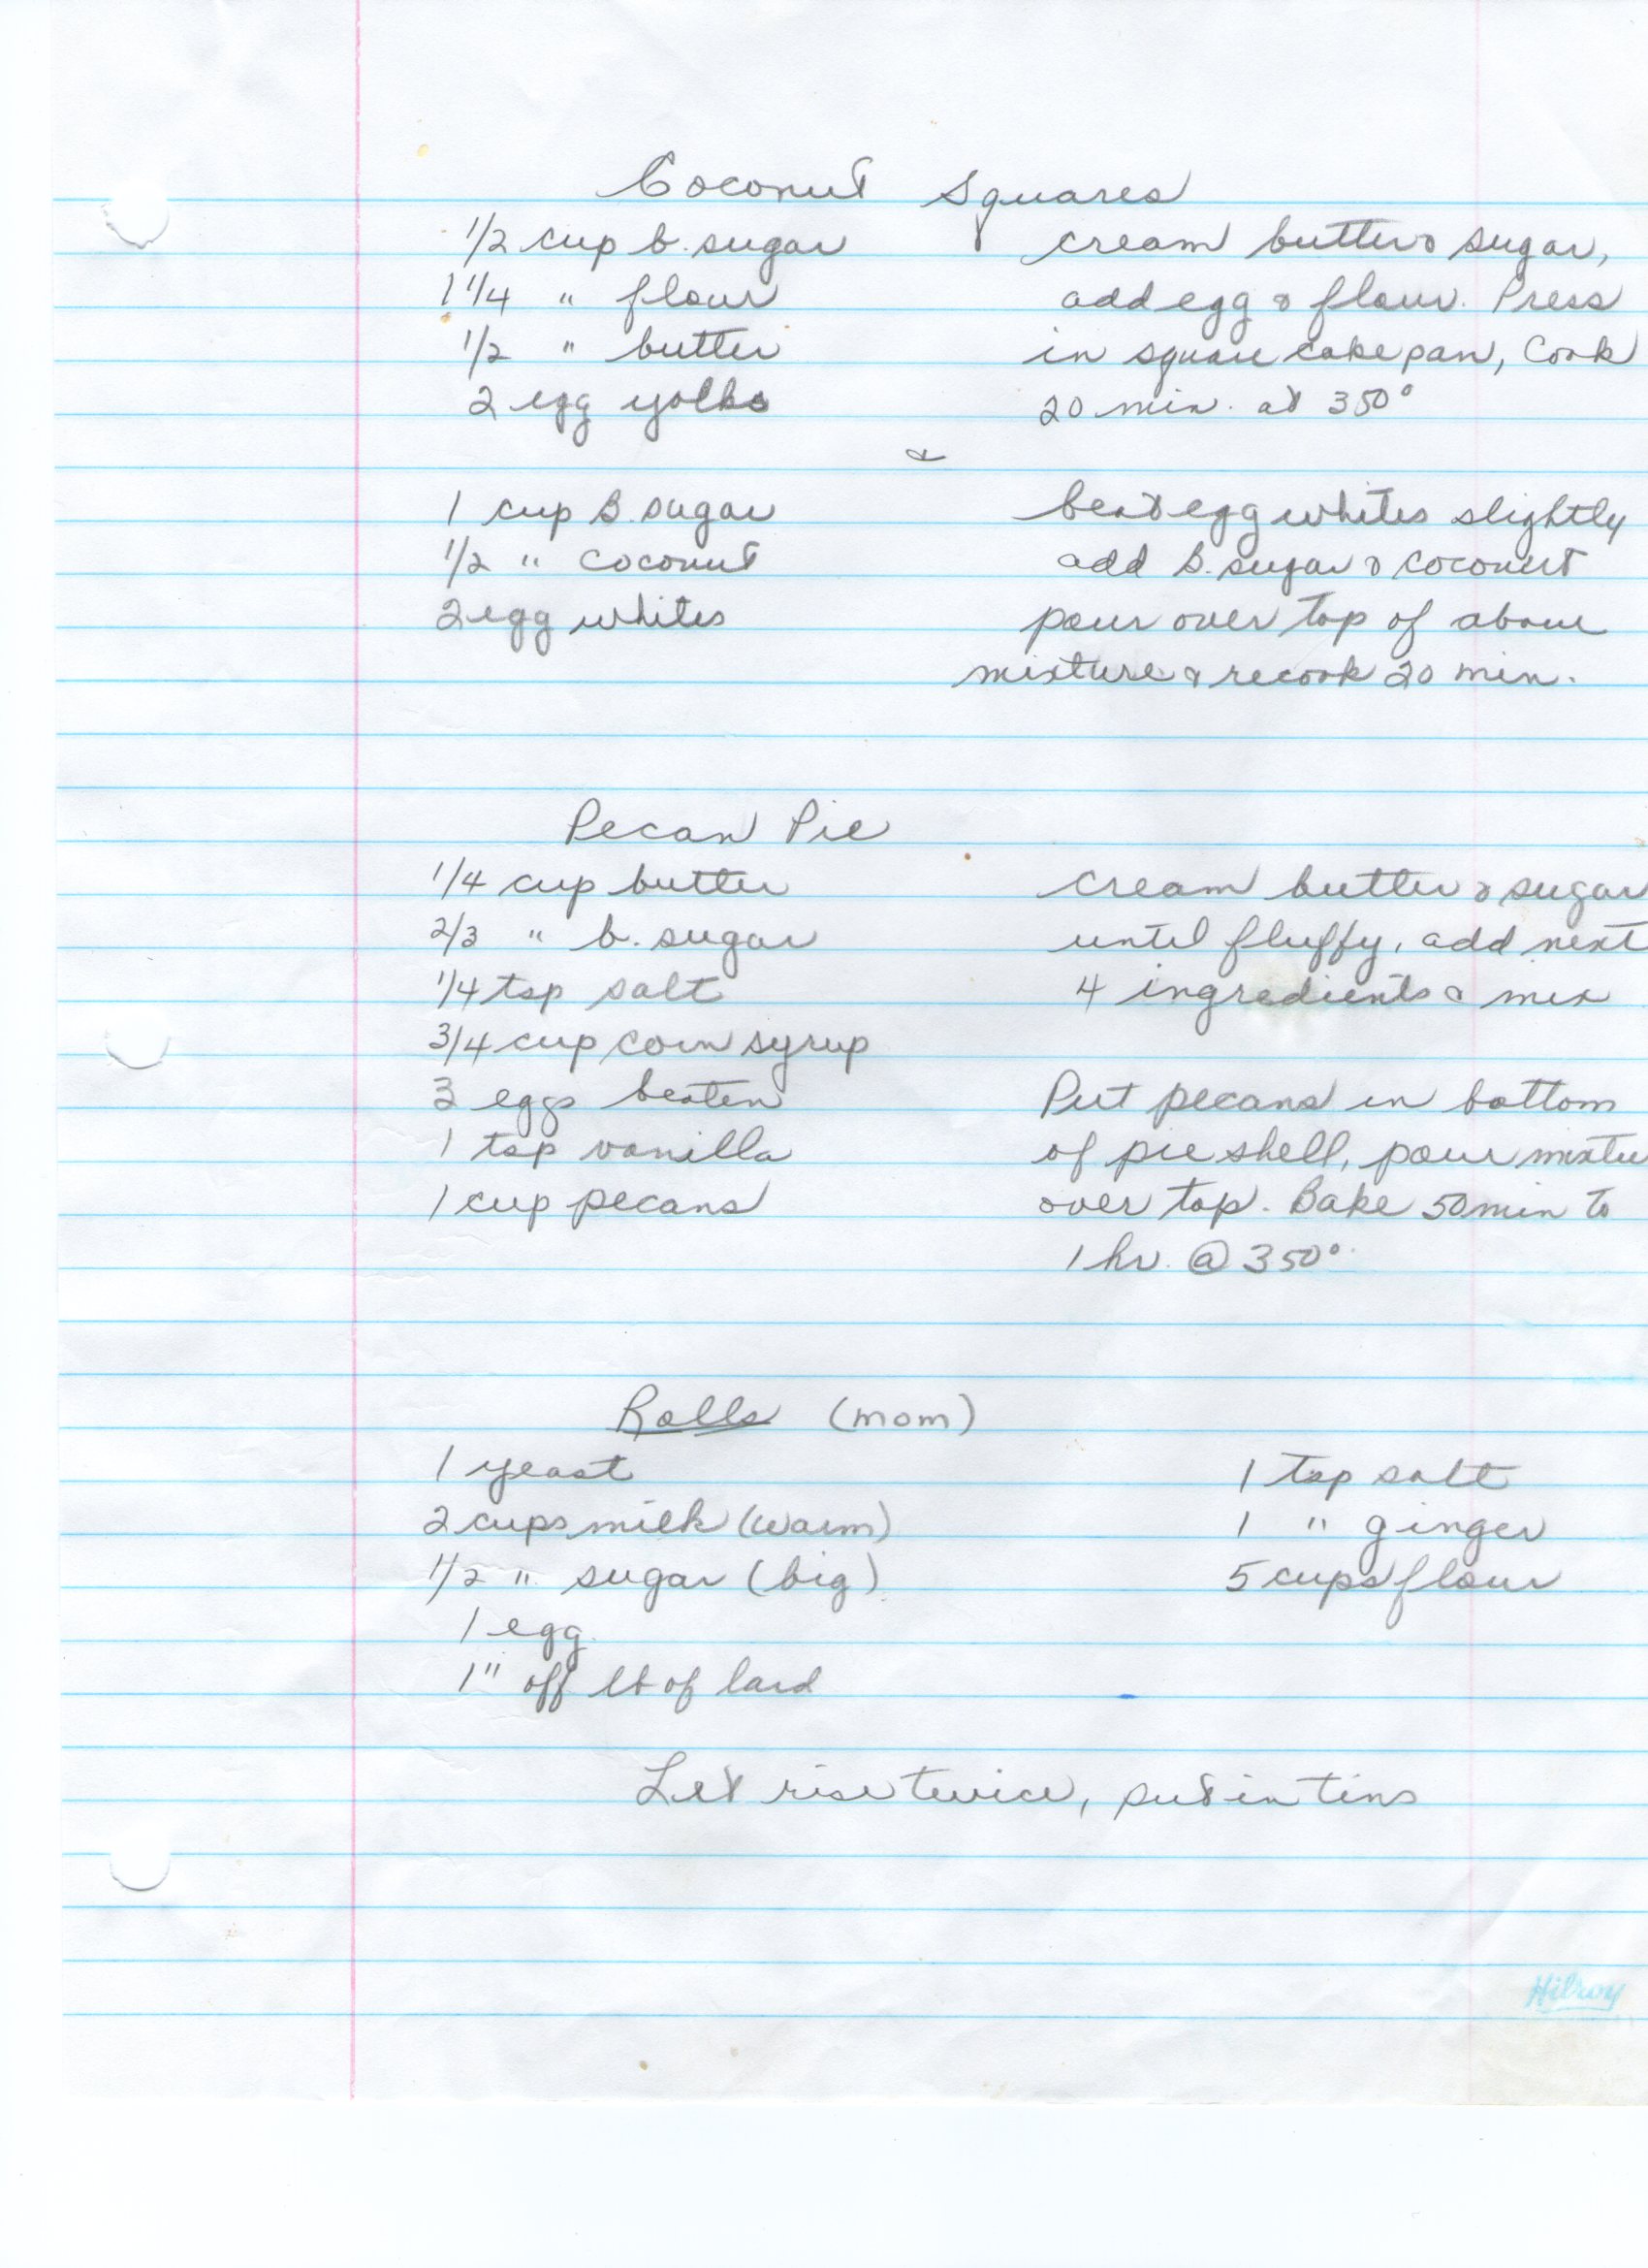 Coconut Squares
1/2 cup b. sugar cream butter & sugar,
1 1/4 " flour add egg & flour. Press
1/2 " butter in square cake pan, Cook
2 egg yolks 20 min. at 350°
&
1 cup B. sugar beat egg whites slightly
1/2 " coconut add B. sugar & coconut
2 egg whites pour over top of above
mixture & recook 20 min.
Pecan Pie
1/4 cup butter cream butter & sugar
2/3 " b. sugar until fluffy, add next
1/4 tsp salt 4 ingredients & mix
3/4 cup corn syrup
3 eggs beaten Put pecans in bottom
1 tsp vanilla of pie shell, pour mixture
1 cup pecans over top. Bake 50 min to
1 hr. @ 350°
Rolls (mom)
1 yeast 1 tsp salt
2 cups milk (warm) 1 " ginger
1/2 " sugar (big) 5 cups flour
1 egg
1" off lb of lard
Let rise twice, put in tins
Hilroy